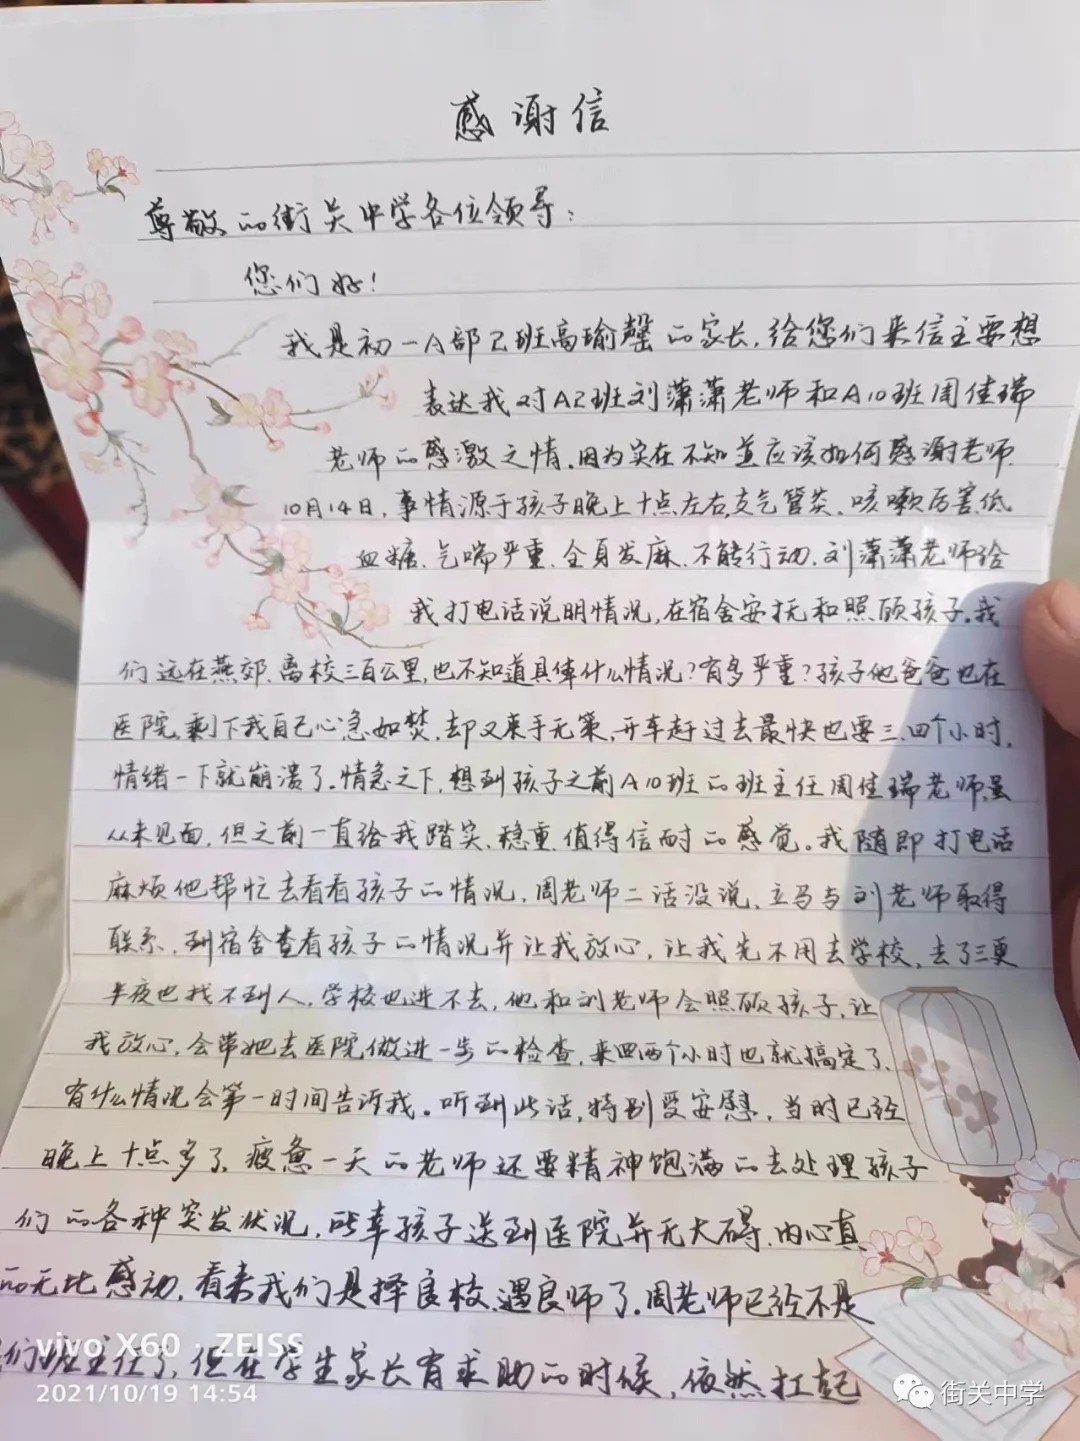 感谢信
尊敬的街关中学各位领导：
您们好！
我是初一A部2班高瑜馨的家长，给您们来信主要想
表达我对A2班刘潇潇老师和A10班周佳瑞
老师的感激之情。因为实在不知道应该如何感谢老师.
10月14日，事情源于孩子晚上十点左右，支气管炎、咳嗽厉害、低
血糖、气喘严重、全身发麻、不能行动，刘潇潇老师给
我打电话说明情况，在宿舍安抚和照顾孩子。我
们远在燕郊，离校三百公里，也不知道具体什么情况？有多严重？孩子他爸爸也在
医院，剩下我自己心急如焚，却又束手无策，开车赶过去最快也要三、四个小时，
情绪一下就崩溃了。情急之下，想到孩子之前A10班的班主任周佳瑞老师，虽
从未见面，但之前一直给我踏实、稳重、值得信耐的感觉。我随即打电话
麻烦他帮忙去看看孩子的情况，周老师二话没说，立马与刘老师取得
联系，到宿舍查看孩子的情况并让我放心，让我先不用去学校，去了三更
半夜也找不到人，学校也进不去，他和刘老师会照顾孩子，让
我放心，会带她去医院做进一步的检查，来回两个小时也就搞定了，
有什么情况会第一时间告诉我。听到此话，特别受安慰，当时已经
晚上十点多了，疲惫一天的老师还要精神饱满的去处理孩子
们的各种突发状况，所幸孩子送到医院并无大碍，内心真
的无比感动，看来我们是择良校、遇良师了。周老师已经不是
们班主任了，但在学生家长有求助的时候，依然扛起
vivo X60 · ZEISS
2021/10/19 14:54
街关中学